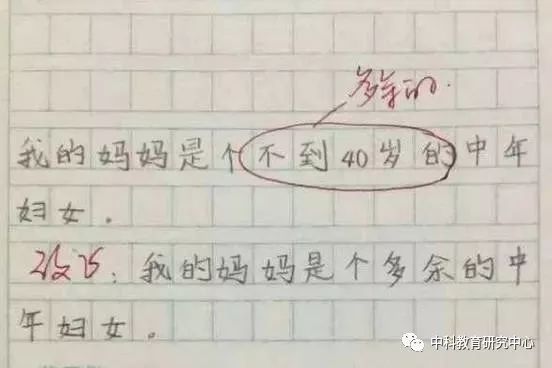 多余的.
我的妈妈是个不到40岁的中年
妇女.
改正:我的妈妈是个多余的中
年妇女。
中科教育研究中心